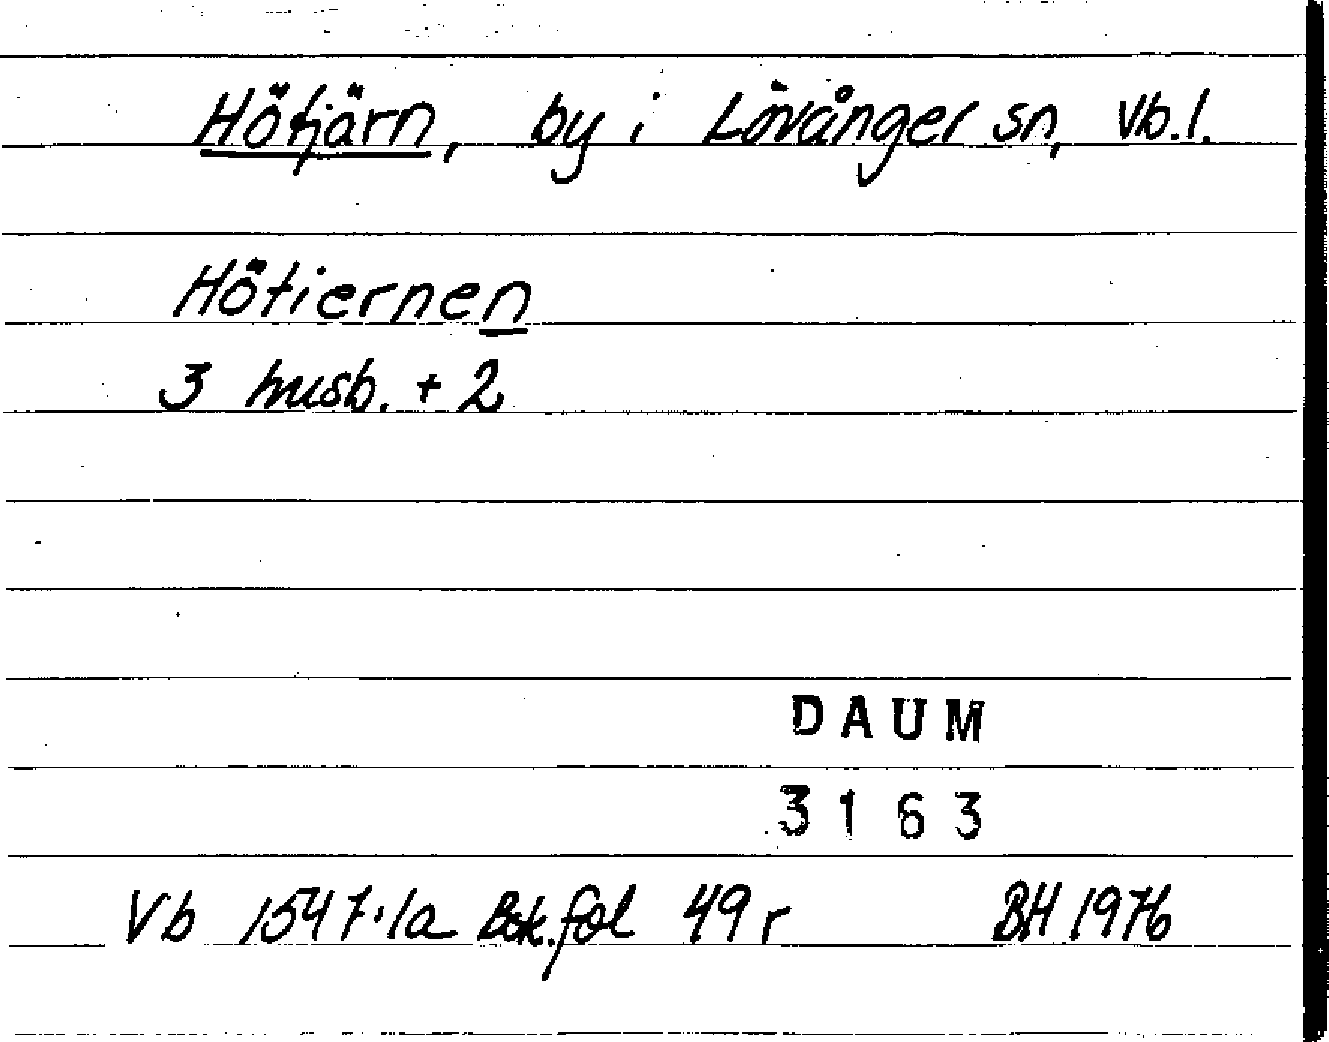 Hötjärn, by i Lövånger sn, Vb.l.
Hötiernen
3 husb. + 2
DAUM
3163
Vb 1547:1a Bsk. fol 49 r BH 1976